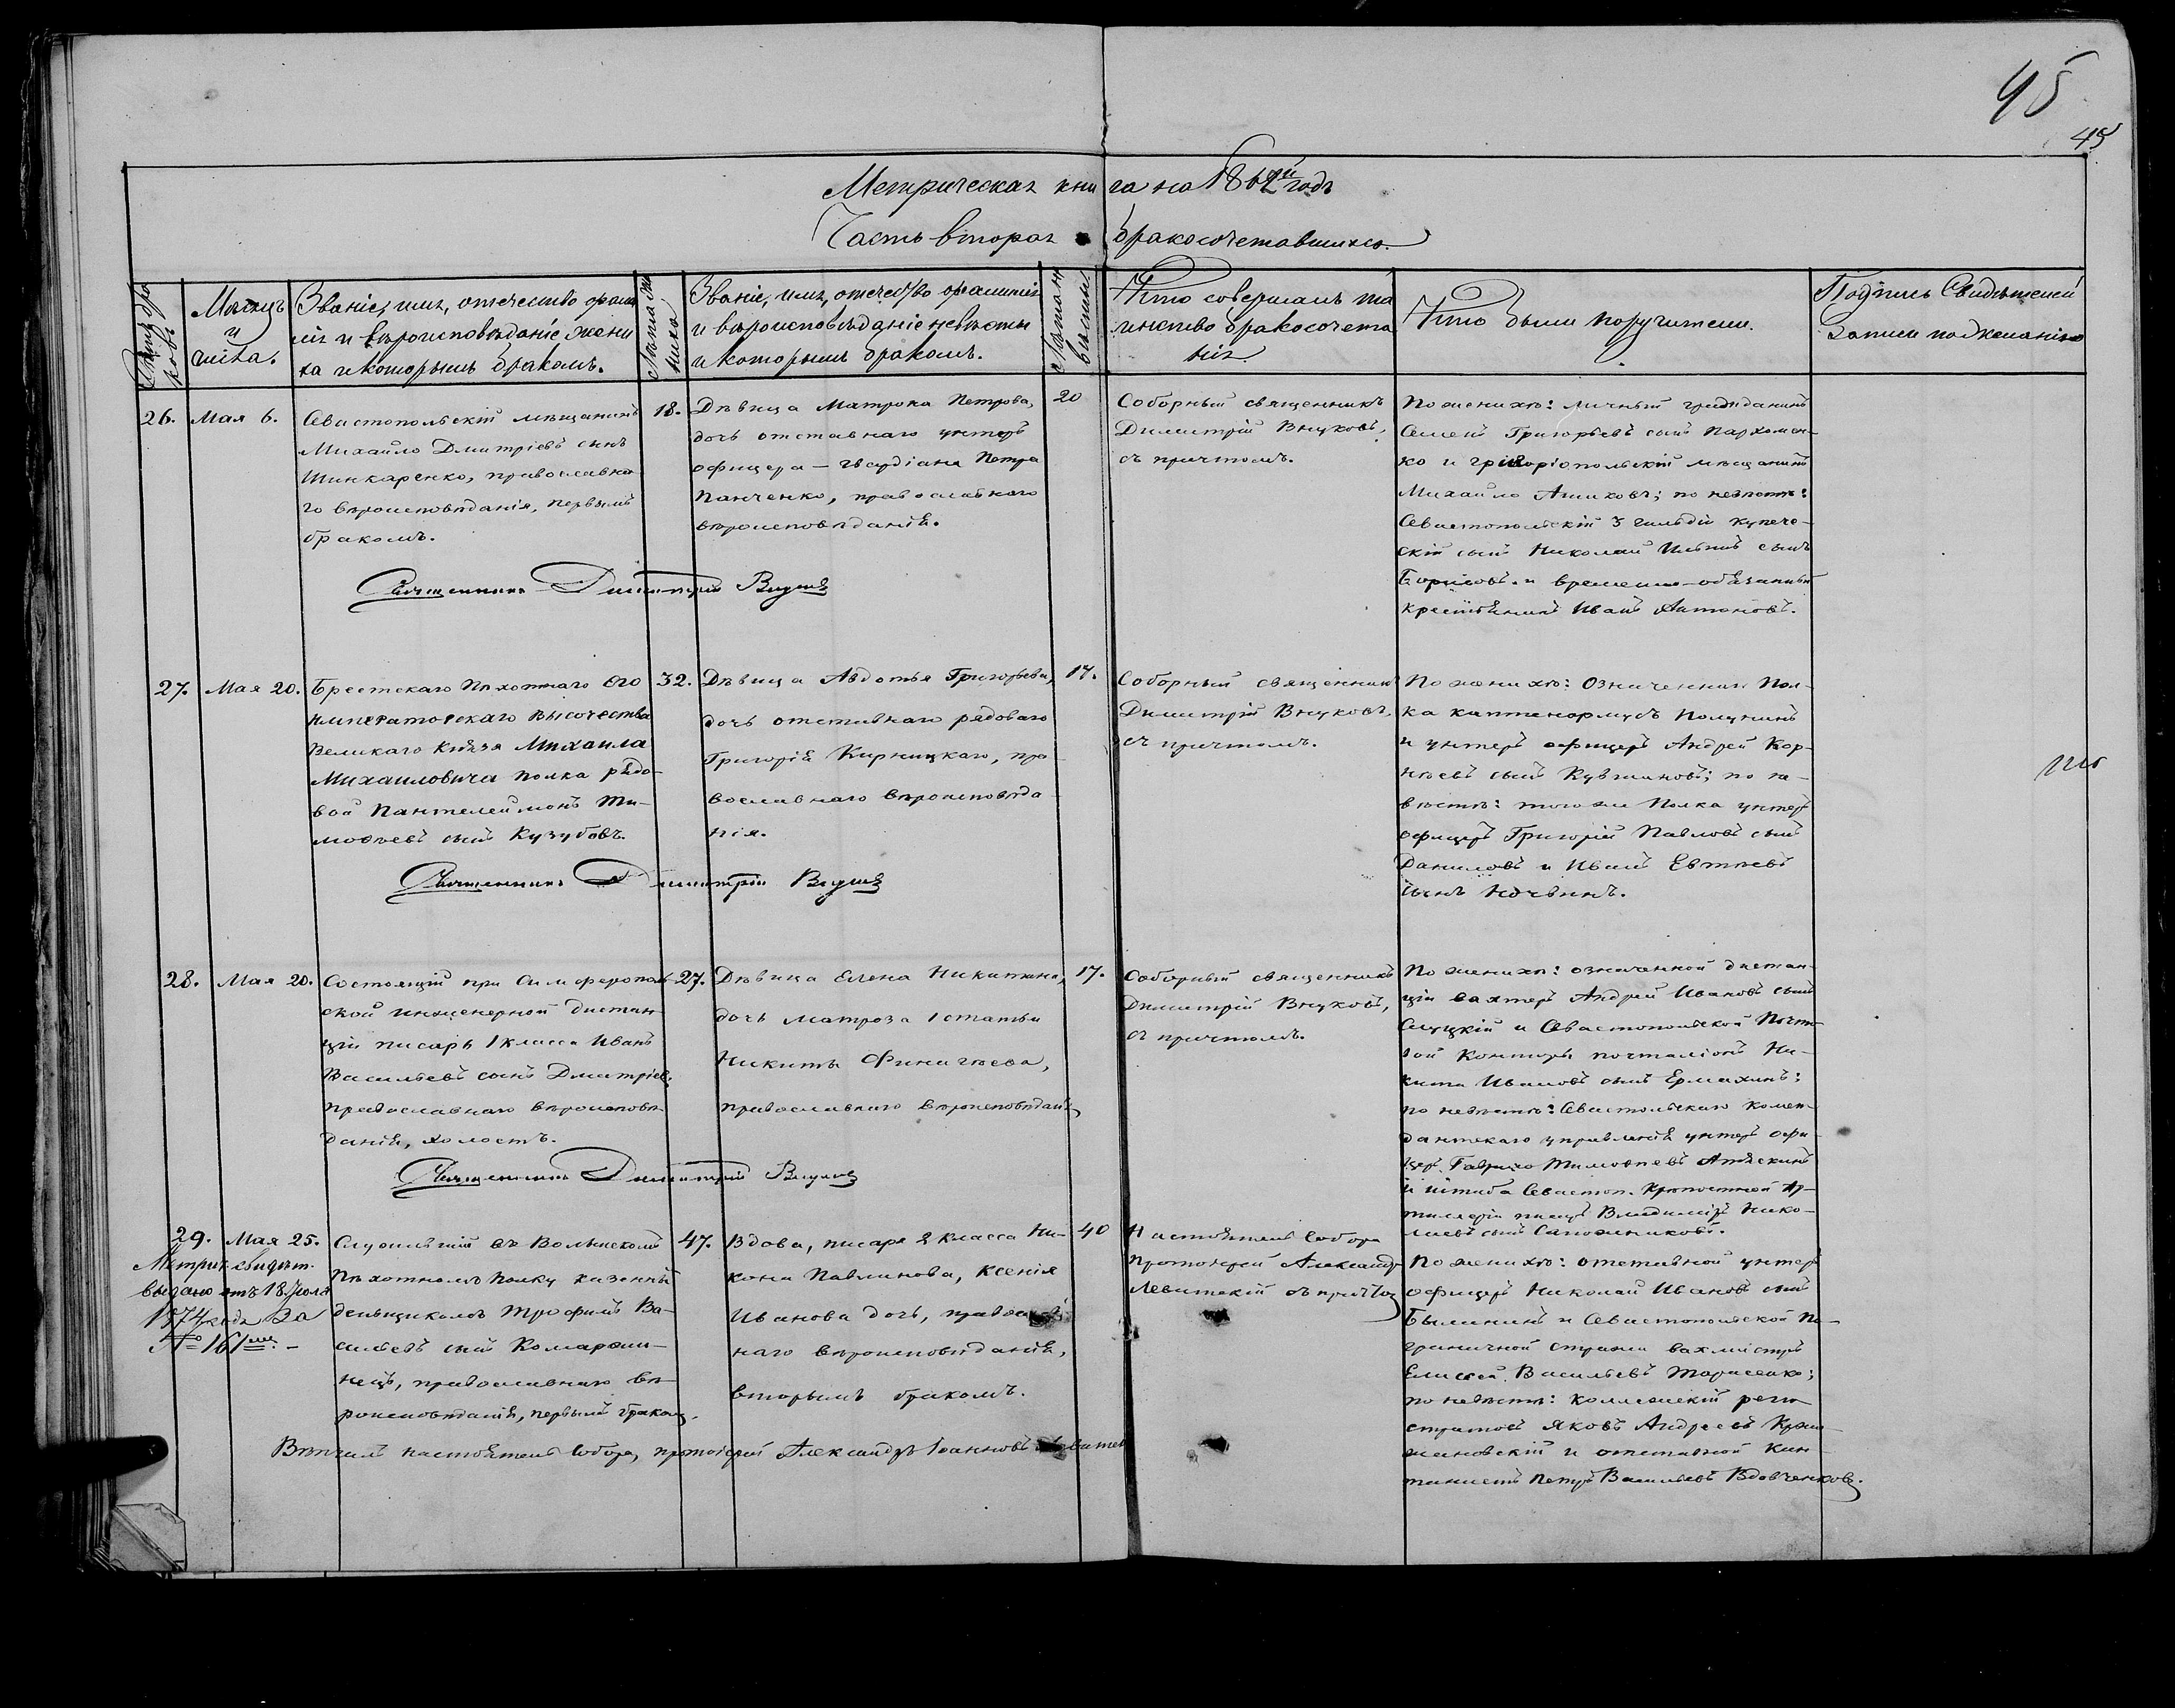 45
45
Метрическая книга на 1862й годъ
Часть вторая о бракосочетавшихся.
Мѣсяцъ
и
числа.
Званіе, имя, отечество фами
лія и вѣроисповѣданіе жени
ха и которымъ бракомъ.
Лѣта же
ниха
Званіе, имя, отечество фамилія
и вѣроисповѣданіе невѣсты
и которымъ бракомъ.
Лѣта не
вѣсты
Кто совершалъ та
инство бракосочета
нія
Кто были поручители.
Подпись Свидѣтелей
записи по желанію
26.
Мая 6.
Севастопольскій мѣщанинъ
Михайло Дмитріевъ сынъ
Шинкаренко, православна
го вѣроисповѣданія, первымъ
бракомъ.
18.
Дѣвица Матрона Петрова,
дочь отставнаго унтеръ
офицера – гвардіана Петра
Панченко, православнаго
вѣроисповѣданія.
20
Соборный священникъ
Димитрій Внуковъ,
съ причтомъ.
По женихѣ: личный гражданинъ
Семенъ Григорьевъ сынъ Пархомен-
ко и григоріопольскій мѣщанинъ
Михайло Ашиховъ; по невѣстѣ:
Севастопольскій 3 гильдіи купече-
скій сынъ Николай Ильинъ сынъ
Борисовъ и временно-обязанный
крестьянинъ Иванъ Антоновъ.
Священникъ Димитрій Внуковъ
27.
Мая 20.
Брестскаго Пѣхотнаго Его
Императорскаго Высочества
Великаго Князя Михаила
Михаиловича полка рядо-
вой Пантелеймонъ Ти-
мофѣевъ сынъ Кузубовъ.
32.
Дѣвица Авдотья Григорьева,
дочь отставнаго рядоваго
Григорія Кирницкаго, пра
вославнаго вѣроисповѣда
нія.
17.
Соборный священникъ
Димитрій Внуковъ
съ причтомъ.
По женихѣ: Означеннаго Пол-
ка каптенармусъ Полунинъ
и унтеръ офицеръ Андрей Кор-
нѣевъ сынъ Кувшиновъ; по не-
вѣстѣ: того же Полка унтеръ
офицеръ Григорій Павловъ сынъ
Даниловъ и Иванъ Евтѣевъ
сынъ
Священникъ Димитрій Внуковъ
28.
Мая 20.
Состоящій при Симферополь-
ской инженерной дистан
ціи писарь 1 класса Иванъ
Васильевъ сынъ Дмитріев,
православнаго вѣроисповѣ-
данія, холостъ.
27.
Дѣвица Елена Никитина,
дочь матроза 1 статьи
Никиты Финичѣева,
православнаго вѣроисповѣданія
17.
Соборный священникъ
Димитрій Внуковъ,
съ причтомъ.
По женихѣ: означенной дистан-
ціи вахтеръ Андрей Ивановъ сынъ
Слуцкій и Севастопольской Почто
вой Конторы почталіонъ Ни-
кита Ивановъ сынъ Ермахинъ;
по невѣстѣ: Севастопольскаго Комен-
дантскаго управленія унтеръ офи-
церъ Гаврило Тимофѣевъ
и штаба Севастоп. Крѣпостной Ар-
тиллеріи писарь Владиміръ Нико-
лаевъ сынъ Сапожниковъ.
Священникъ Димитрій Внуковъ
29.
Мая 25.
Метрич. свидѣт.
выдано отъ 18 Іюля
1874 года За
№ 161мъ. –
Служившій въ Волынскомъ
Пѣхотномъ Полку казенный
деньщикомъ Трофимъ Ва-
сильевъ сынъ Комарши-
нецъ, православнаго вѣ-
роисповѣданія, первымъ бракомъ.
47.
Вдова, писаря 2 класса Ни-
кона Павлинова, Ксенія
Иванова дочь, правосл
наго вѣроисповѣданія,
вторымъ бракомъ.
40
Настоятель Собора
Протоіерей Александръ
Левитскій съ причтом
По женихѣ: отставной унтеръ
офицеръ Николай Ивановъ сынъ
Былининъ и Севастопольской По-
граничной стражи вахмистръ
Елисей Васильевъ Тарасенко;
по невѣстѣ: коллежскій реги
страторъ Яковъ Андреевъ Крыж
жановскій и отставной Кан-
тонистъ Петръ Васильевъ Вдовченковъ.
Вѣнчалъ настоятель Собора, протоіерей Александръ Іоанновъ Левитск